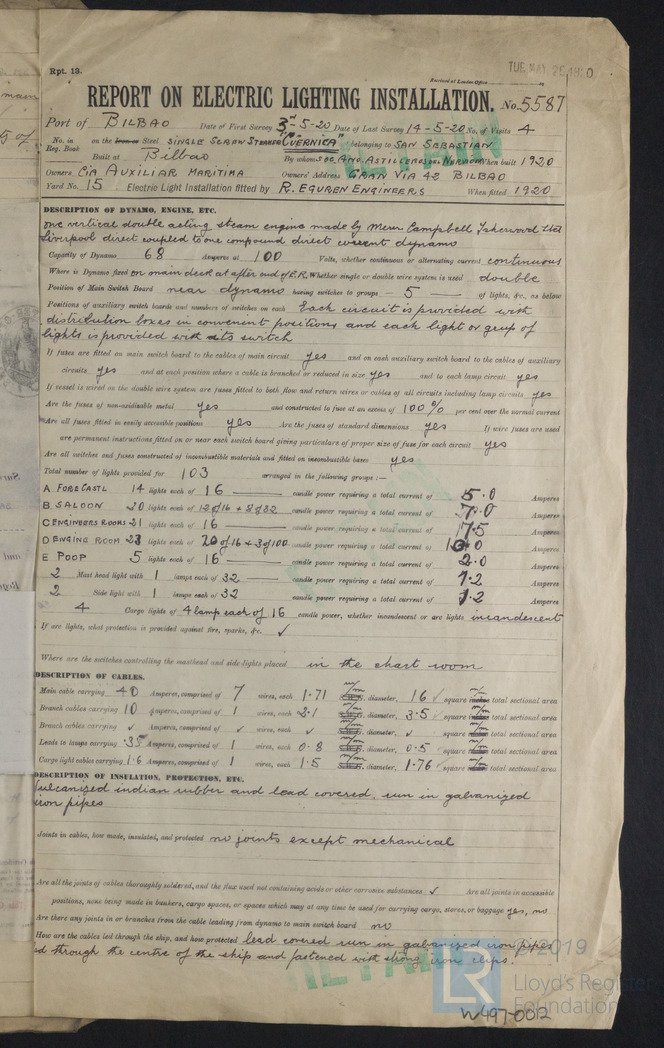 Rpt. 13.
TUE. MAY. 25 1920
REPORT ON ELECTRIC LIGHTING INSTALLATION. No. 5587
Port of BILBAO Date of First Survey 3-5-20 Date of Last Survey 14-5-20 No. of Visits 4
No. in Reg. Book on the Iron or Steel SINGLE SCREW STEAMER "GUERNICA" belonging to SAN SEBASTIAN
Built at Bilbao By whom SOC. ANO. ASTILLEROS DEL NERVION When built 1920
Owners CIA AUXILIAR MARITIMA Owners' Address GRAN VIA 42 BILBAO
Yard No. 15 Electric Light Installation fitted by R. EGUREN ENGINEERS When fitted 1920
DESCRIPTION OF DYNAMO, ENGINE, ETC.
one vertical double acting steam engine made by Messrs Campbell Isherwood Ltd
Liverpool direct coupled to one compound direct current dynamo
Capacity of Dynamo 68 Amperes at 100 Volts, whether continuous or alternating current continuous
Where is Dynamo fixed on main deck at after end of E.R. Whether single or double wire system is used double
Position of Main Switch Board near dynamo having switches to groups 5 of lights, &c., as below
Positions of auxiliary switch boards and numbers of switches on each Each circuit is provided with
distribution boxes in convenient positions and each light or grup of
lights is provided with its switch
If fuses are fitted on main switch board to the cables of main circuit yes and on each auxiliary switch board to the cables of auxiliary
circuits yes and at each position where a cable is branched or reduced in size yes and to each lamp circuit yes
If vessel is wired on the double wire system are fuses fitted to both flow and return wires or cables of all circuits including lamp circuits yes
Are the fuses of non-oxidizable metal yes and constructed to fuse at an excess of 100% per cent over the normal current
Are all fuses fitted in easily accessible positions yes Are the fuses of standard dimensions yes If wire fuses are used
are permanent instructions fitted on or near each switch board giving particulars of proper size of fuse for each circuit yes
Are all switches and fuses constructed of incombustible materials and fitted on incombustible bases yes
Total number of lights provided for 103 arranged in the following groups :—
A FORECASTL 14 lights each of 16 candle power requiring a total current of 5.0 Amperes
B SALOON 20 lights each of 12 of 16 + 8 of 32 candle power requiring a total current of 7.0 Amperes
C ENGINEERS ROOMS 21 lights each of 16 candle power requiring a total current of 7.5 Amperes
D ENGINE ROOM 23 lights each of 20 of 16 + 3 of 100 candle power requiring a total current of 10.0 Amperes
E POOP 5 lights each of 16 candle power requiring a total current of 2.0 Amperes
2 Mast head light with 1 lamps each of 32 candle power requiring a total current of 1.2 Amperes
2 Side light with 1 lamps each of 32 candle power requiring a total current of 1.2 Amperes
4 Cargo lights of 4 lamp each of 16 candle power, whether incandescent or arc lights incandescent
If arc lights, what protection is provided against fire, sparks, &c. ✓
Where are the switches controlling the masthead and side lights placed in the chart room
DESCRIPTION OF CABLES.
Main cable carrying 40 Amperes, comprised of 7 wires, each 1.71 m/m diameter, 16 ✓ square m/m total sectional area
Branch cables carrying 10 Amperes, comprised of 1 wires, each 2.1 m/m diameter, 3.5 ✓ square m/m total sectional area
Branch cables carrying ✓ Amperes, comprised of ✓ wires, each ✓ m/m diameter, ✓ square m/m total sectional area
Leads to lamps carrying .35 Amperes, comprised of 1 wires, each 0.8 m/m diameter, 0.5 ✓ square m/m total sectional area
Cargo light cables carrying 1.6 Amperes, comprised of 1 wires, each 1.5 m/m diameter, 1.76 ✓ square m/m total sectional area
DESCRIPTION OF INSULATION, PROTECTION, ETC.
Vulcanized indian rubber and lead covered, run in galvanized
iron pipes
Joints in cables, how made, insulated, and protected no joints except mechanical
Are all the joints of cables thoroughly soldered, and the flux used not containing acids or other corrosive substances ✓ Are all joints in accessible
positions, none being made in bunkers, cargo spaces, or spaces which may at any time be used for carrying cargo, stores, or baggage yes, no
Are there any joints in or branches from the cable leading from dynamo to main switch board no
How are the cables led through the ship, and how protected lead covered run in galvanized iron pipes
d through the centre of the ship and fastened with strong iron clips.
RETAIN
2019
LR Lloyd's Register
Foundation
W497-0012